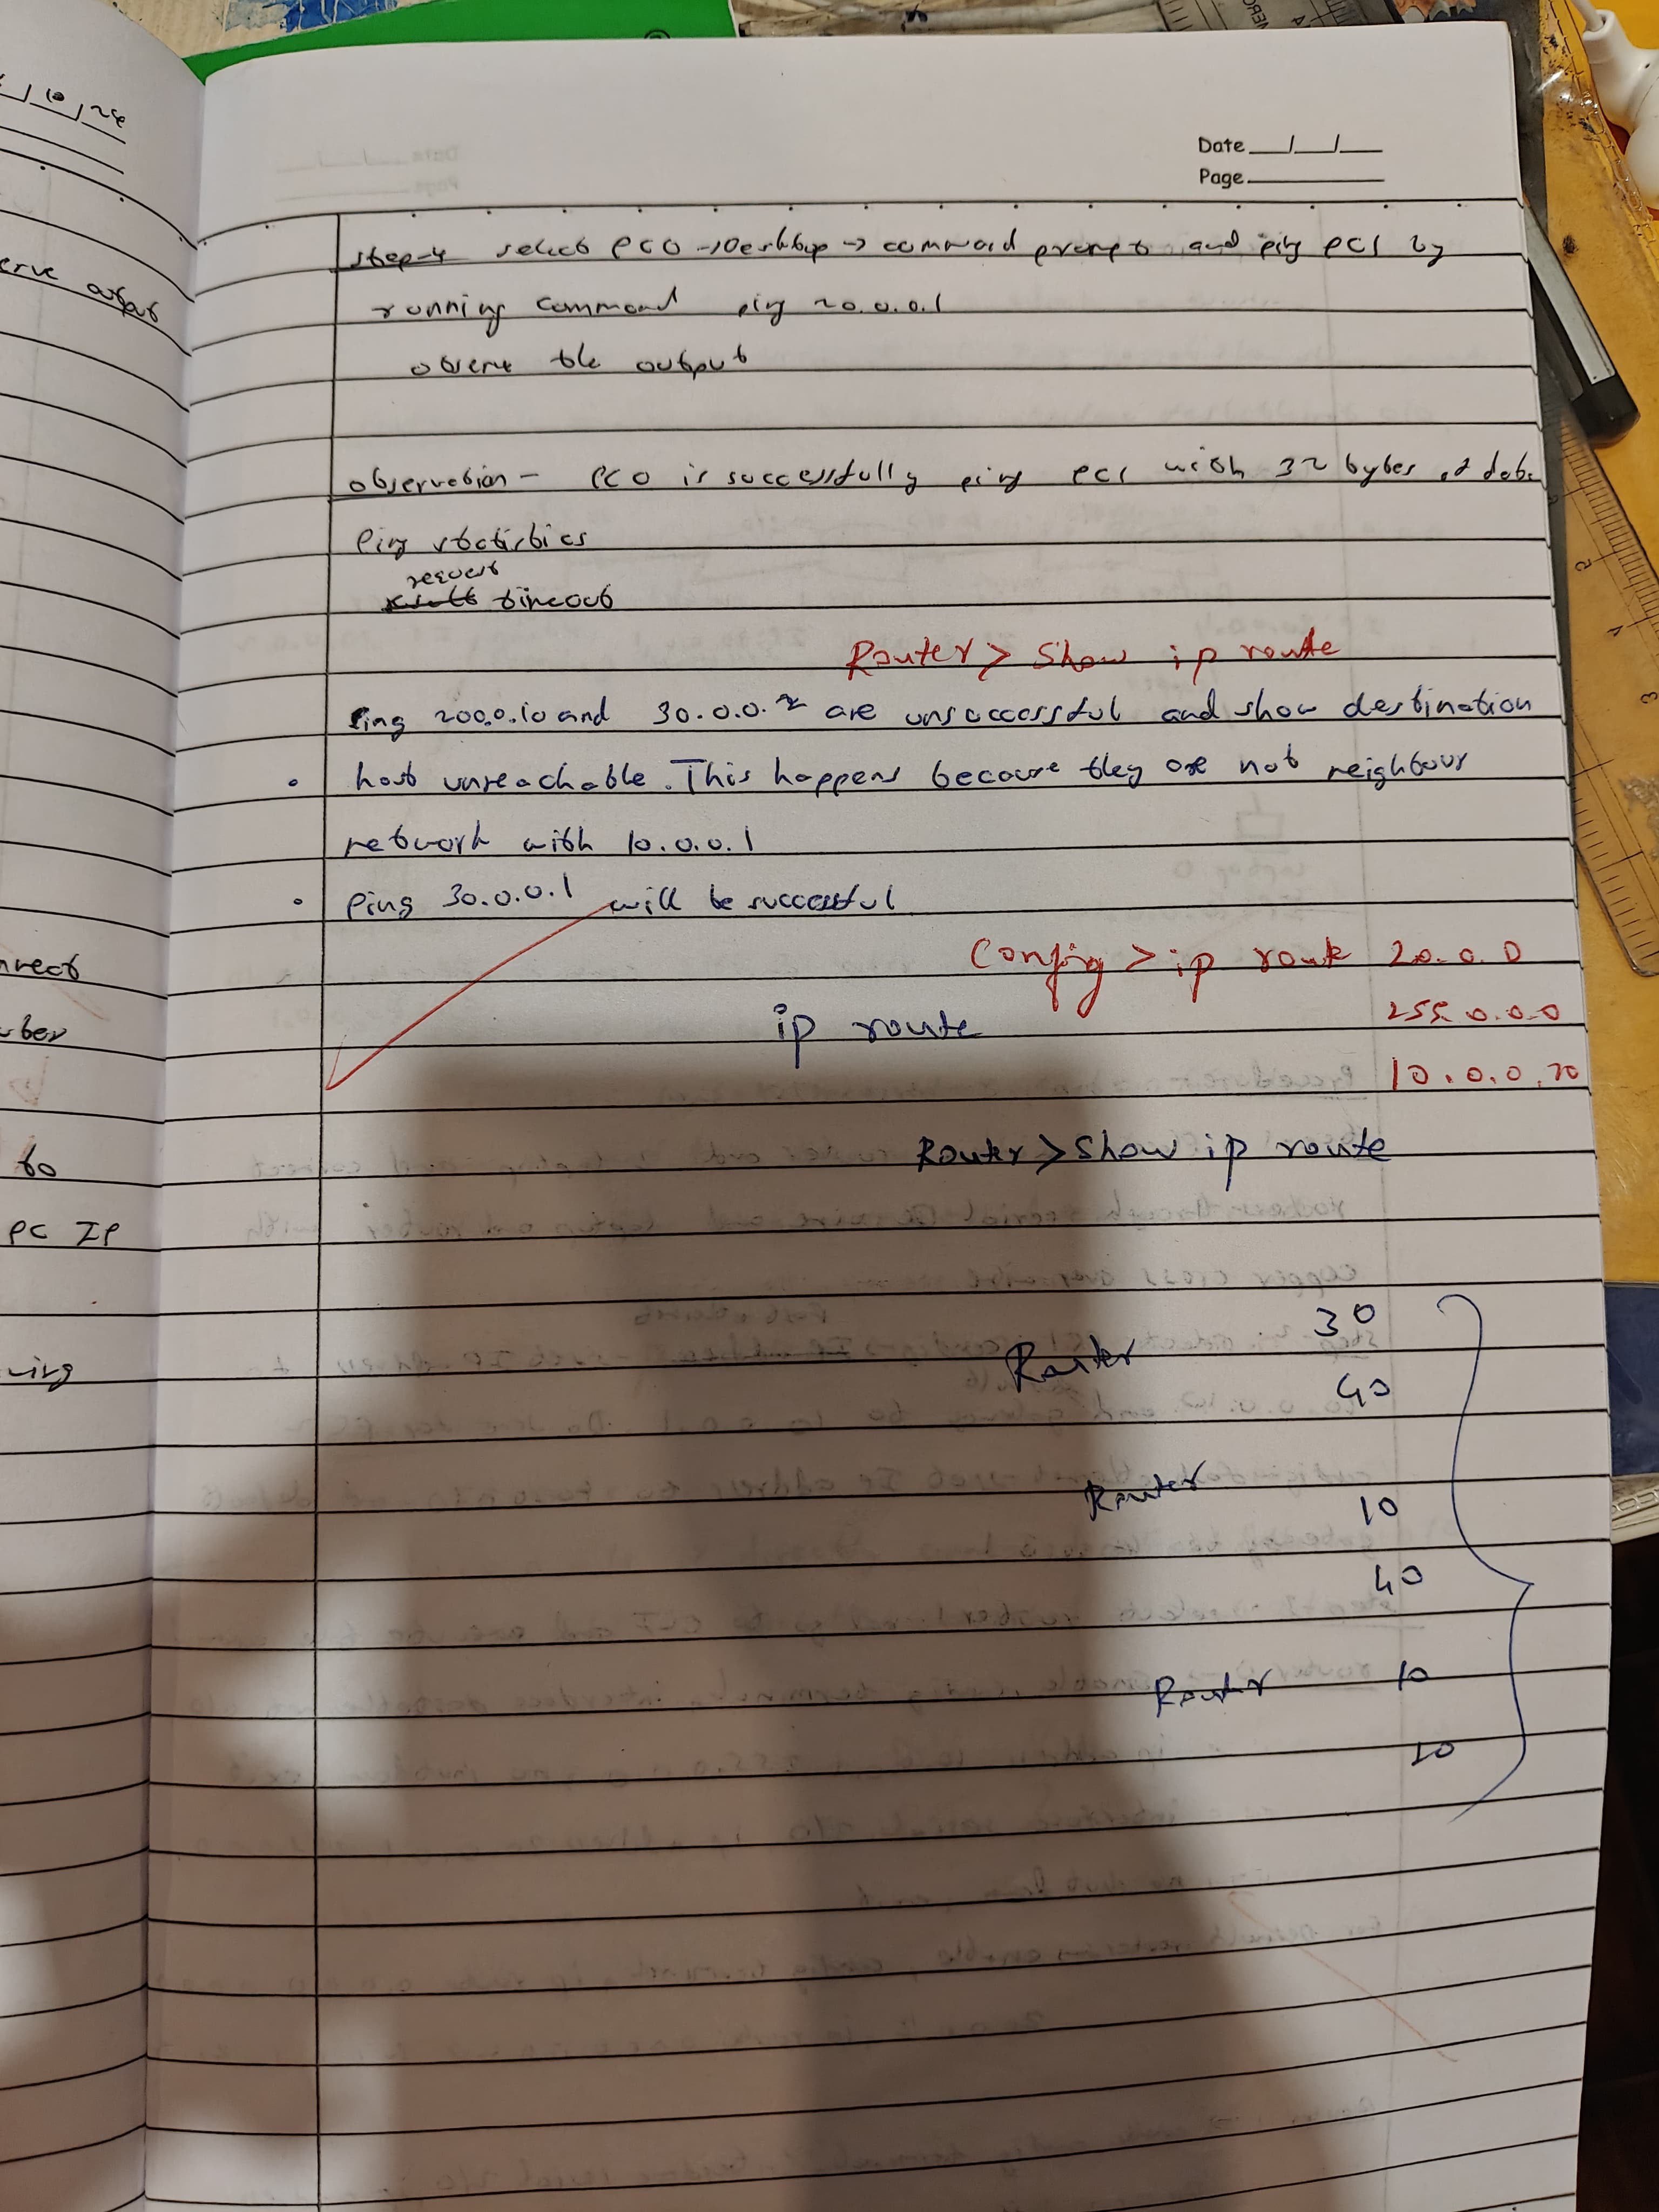 Date __/__/__
Page
step-4 select PC0 → Desktop → command prompt and ping PC1 by
running command ping 20.0.0.1
observe the output
observation - PC0 is successfully ping PC1 with 32 bytes of data
Ping statistics
request
timeout
Router > Show ip route
Ping 200.0.10 and 30.0.0.2 are unsuccessful and show destination
host unreachable. This happens because they are not neighbour
network with 10.0.0.1
Ping 30.0.0.1 will be successful
Config > ip route 20.0.0
ip route 255.0.0.0
10.0.0.20
Router > Show ip route
30
Router
40
Router
10
40
Router 10
20
erve output
nnect
to
PC IP